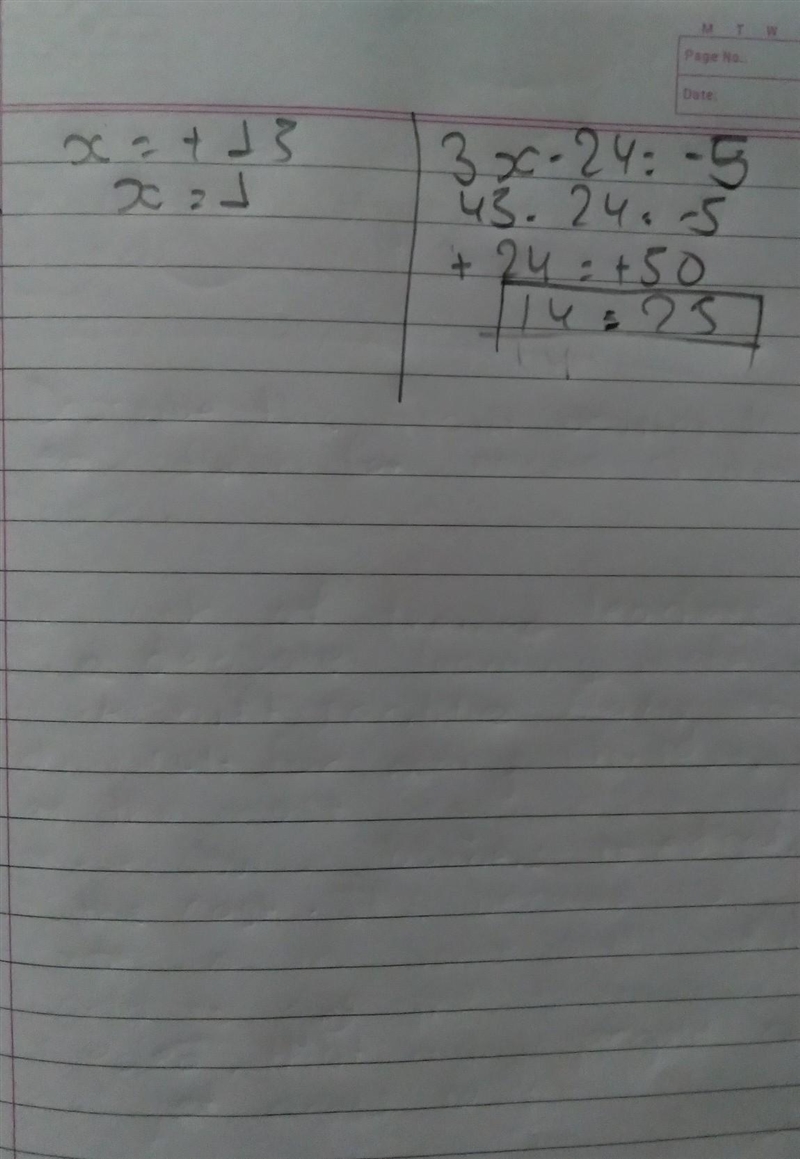 M T W
Page No.:
Date:
x = + 13
x = 1
3x - 24 = -5
43 - 24 = -5
+ 24 = +50
14 = 25